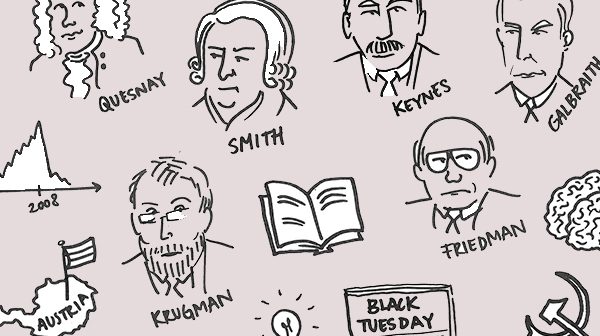 QUESNAY
SMITH
KEYNES
GALBRAITH
2008
KRUGMAN
FRIEDMAN
AUSTRIA
BLACK
TUESDAY